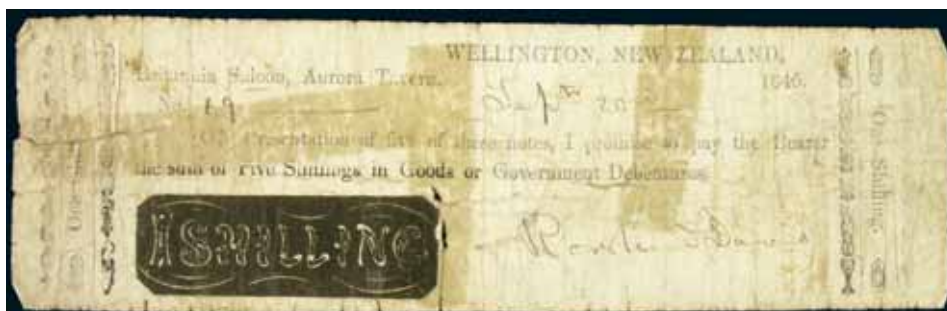 WELLINGTON, NEW ZEALAND,
Britannia Saloon, Aurora Tavern. 1846.
No. 19 Septr 20
ON Presentation of five of these notes, I promise to pay the Bearer
the sum of Five Shillings in Goods or Government Debentures.
1 SHILLING
One Shilling.